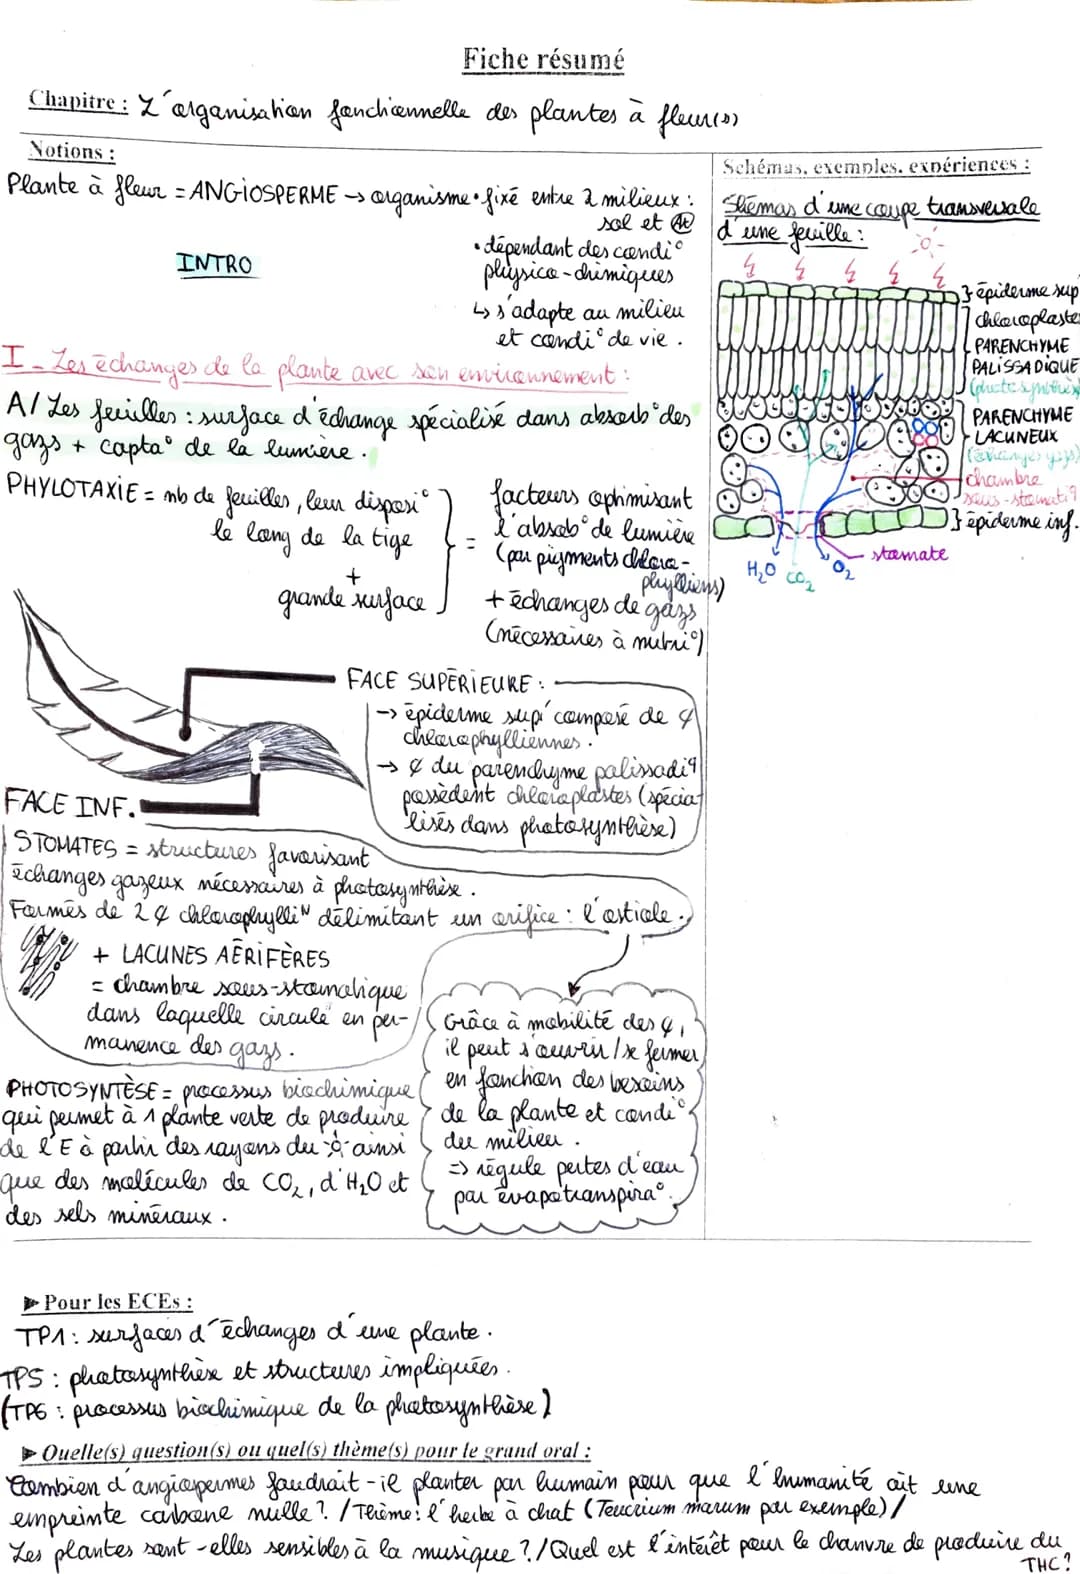 Fiche résumé
Chapitre : L'organisation fonctionnelle des plantes à fleur(s)
Notions :
Plante à fleur = ANGIOSPERME → organisme • fixé entre 2 milieux :
sol et At
• dépendant des condi°
physico-chimiques
INTRO
↳ s'adapte au milieu
et condi° de vie .
I - Les échanges de la plante avec son environnement :
A/ Les feuilles : surface d'échange spécialisé dans absorb° des
gazs + capta° de la lumière .
PHYLOTAXIE = nb de feuilles, leur disposi°
le long de la tige
+
grande surface
=
facteurs optimisant
l'absob° de lumière
(par pigments chloro-
phylliens)
+ échanges de gazs
(nécessaires à nutri°)
FACE SUPÉRIEURE :
→ épiderme sup' composé de ¢
chlorophylliennes .
→ ¢ du parenchyme palissadiq
possèdent chloroplastes (spécia-
lisés dans photosynthèse)
FACE INF.
STOMATES = structures favorisant
échanges gazeux nécessaires à photosynthèse .
Formés de 2 ¢ chlorophylliN délimitant un orifice : l'ostiole .
+ LACUNES AÉRIFÈRES
= chambre sous-stomatique
dans laquelle circule en per-
manence des gazs .
Grâce à mobilité des ¢,
il peut s'ouvrir / se fermer
en fonction des besoins
de la plante et condi°
du milieu .
=> régule pertes d'eau
par évapotranspira° .
PHOTOSYNTÈSE = processus biochimique
qui permet à 1 plante verte de produire
de l'E à partir des rayons du ainsi
que des molécules de CO2, d'H2O et
des sels minéraux .
Schémas, exemples, expériences :
Shémas d'une coupe transversale
d'une feuille :
} épiderme sup
chloroplastes
PARENCHYME
PALISSADIQUE
(photosynthèse)
PARENCHYME
LACUNEUX
(échanges gazs)
chambre
sous-stomatiq
} épiderme inf.
stomate
H2O CO2 O2
► Pour les ECEs :
TP1 : surfaces d'échanges d'une plante .
TP5 : photosynthèse et structures impliquées .
(TP6 : processus biochimique de la photosynthèse)
► Quelle(s) question(s) ou quel(s) thème(s) pour le grand oral :
Combien d'angiospermes faudrait-il planter par humain pour que l'humanité ait une
empreinte carbone nulle ? / Thème : l'herbe à chat (Teucrium marum par exemple) /
Les plantes sont-elles sensibles à la musique ? / Quel est l'intérêt pour le chanvre de produire du
THC ?